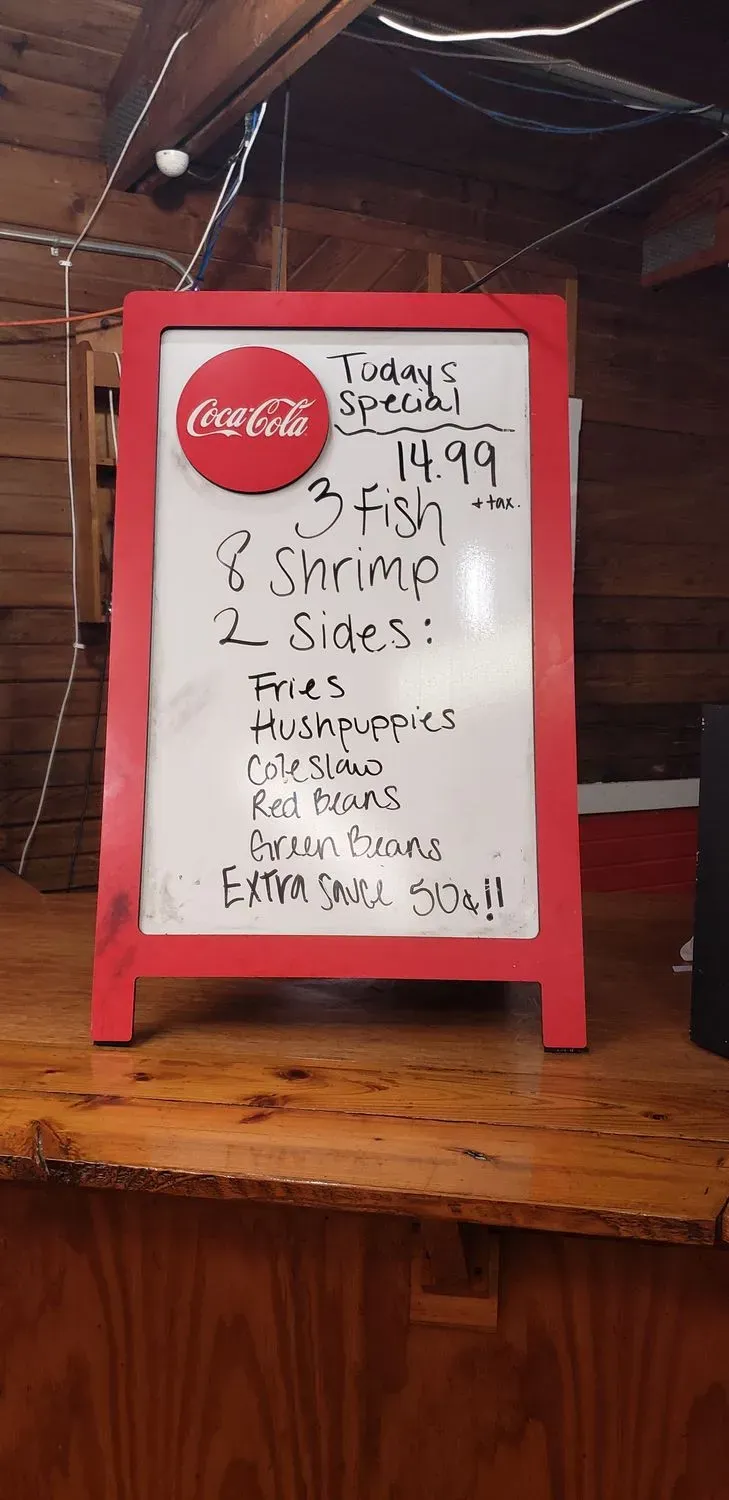 Coca-Cola
Todays
Special
14.99
+ tax.
3 Fish
8 Shrimp
2 Sides:
Fries
Hushpuppies
Coleslaw
Red Beans
Green Beans
Extra Sauce 50¢!!